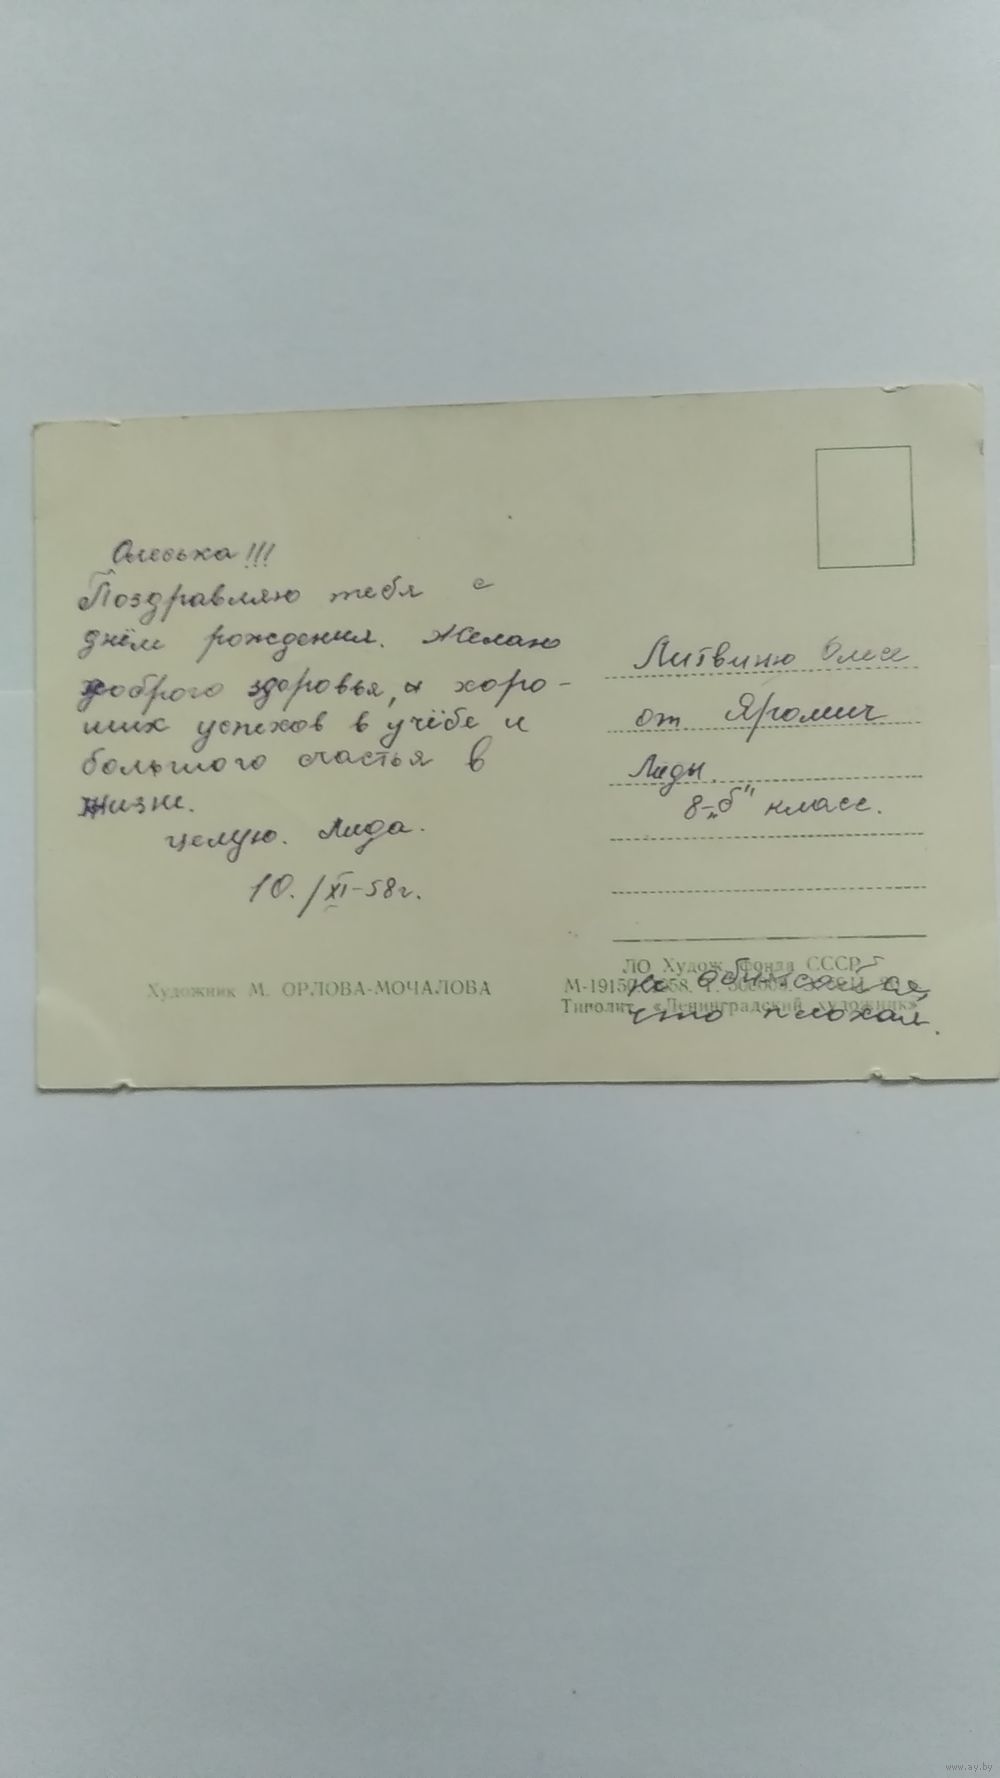 Олеська!!!
Поздравляю тебя с
днём рождения. Желаю
доброго здоровья, и хоро-
ших успехов в учёбе и
большого счастья в
жизни.
целую. Лида.
10./XI-58г.
Художник М. ОРЛОВА-МОЧАЛОВА
Литвиню Олесе
от Яромич
Лиды.
8-„б" класс.
ЛО Худож. Фонда СССР
М-1915
Типолит. «Ленинградский художник»
не обижайся,
что плохая.
www.ay.by